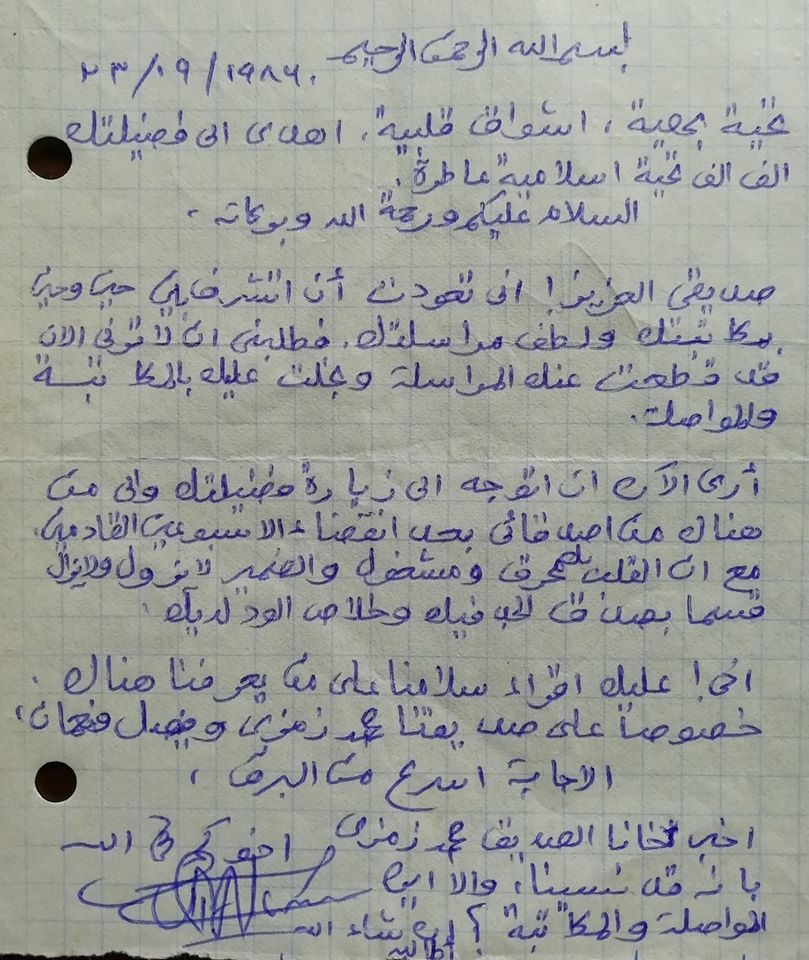 بسم الله الرحمن الرحيم
٢٣/٠٩/١٩٨٦.
تحية بهية ، اشواق قلبية ، اهدى الى فضيلتك
الف الف تحية اسلامية عاطرة .
السلام عليكم ورحمة الله وبركاته ،
صديقى العزيز ! انى تعودت أن اتشرف حين وحين
بمكاتبتك ولطف مراسلتك . ان لا الان
قد قطعت عنك المراسلة وبخلت عليك بالمكاتبة
والمواصلة .
أرى الآن ان اتوجه الى زيارة فضيلتك والى من
هناك من اصدقائى بعد انقضاء الاسبوعين القادمين .
مع ان القلب محرق ومشغول والضمير لا يزول ولا يزال
قسما بصدق الحب فيك وخلاص الود لديك .
اخى ! عليك اقراء سلامنا على من يعرفنا هناك .
خصوصا على صديقنا محمد زمزى وفيصل ،
الاجابة اسرع من البرق ،
اخبر اخانا الصديق محمد زمزى
بانه قد نسينا ، والا اين
المواصلة والمكاتبة ؟ ان شاء الله
اخوكم فى الله